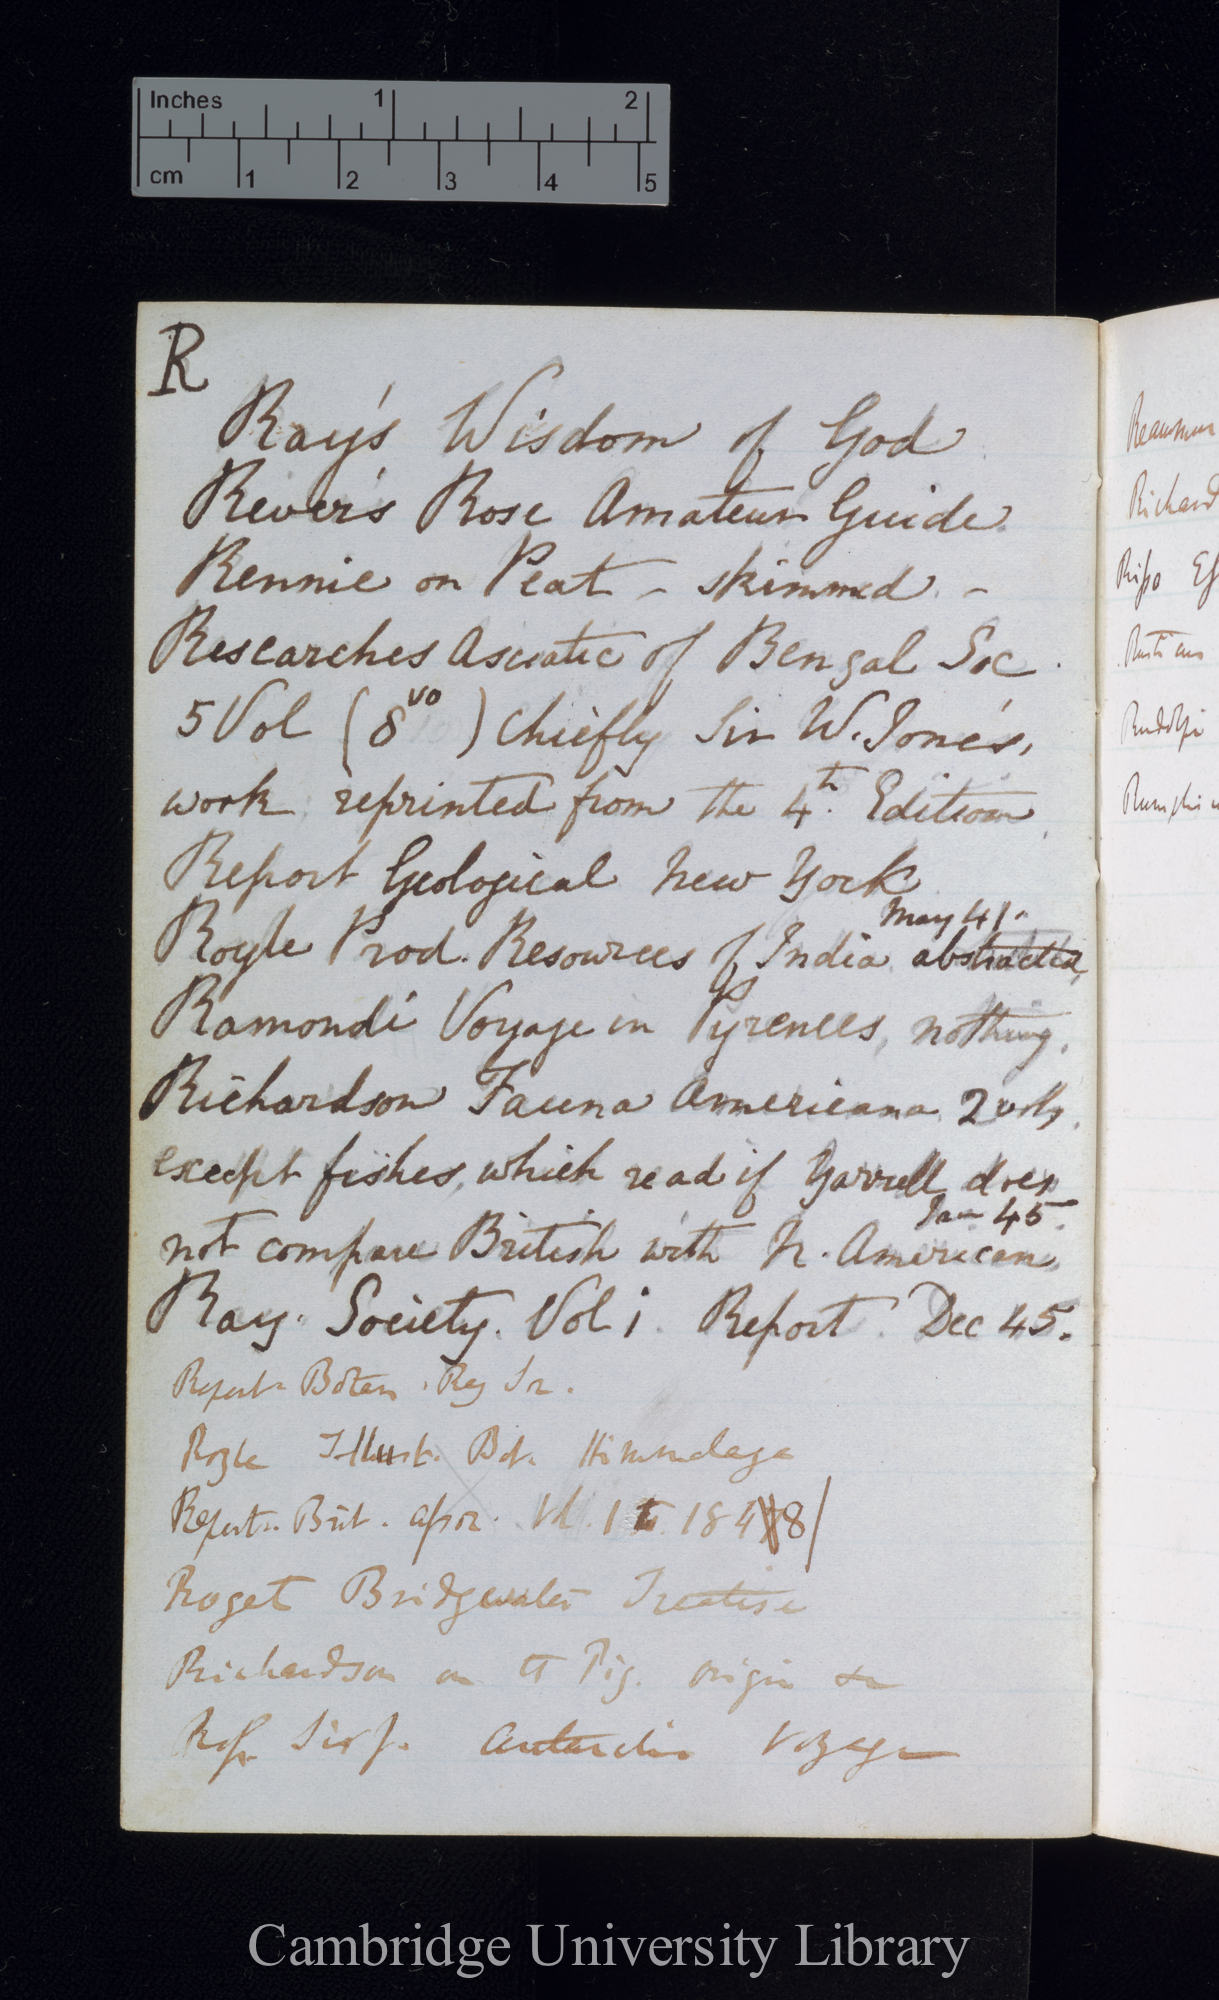 Inches 1 2
cm 1 2 3 4 5
R
Ray's Wisdom of God
River's Rose Amateur Guide.
Rennie on Peat - skimmed. -
Researches Asiatic of Bengal Soc.
5 Vol (8vo) chiefly Sir W. Jones,
work reprinted from the 4th. Edition
Report Geological New York
May 41.
Royle Prod. Resources of India abstracted,
Ramondi Voyage in Pyrenees, nothing.
Richardson Fauna Americana. 2 vols.
except fishes, which read if Yarrell does
Jan 45.
not compare British with N. American.
Ray. Society. Vol 1. Report. Dec 45.
Report Botan. Ray Soc.
Royle Illust. Bot. Himmalaya
Report. Brit. assoc. Vol. 1 to 1848
Roget Bridgewater Treatise
Richardson on the Pig. origin &c
Ross Sir J. Antarctic Voyage
Reaumur
Richard
Risso
Rudolphi
Cambridge University Library